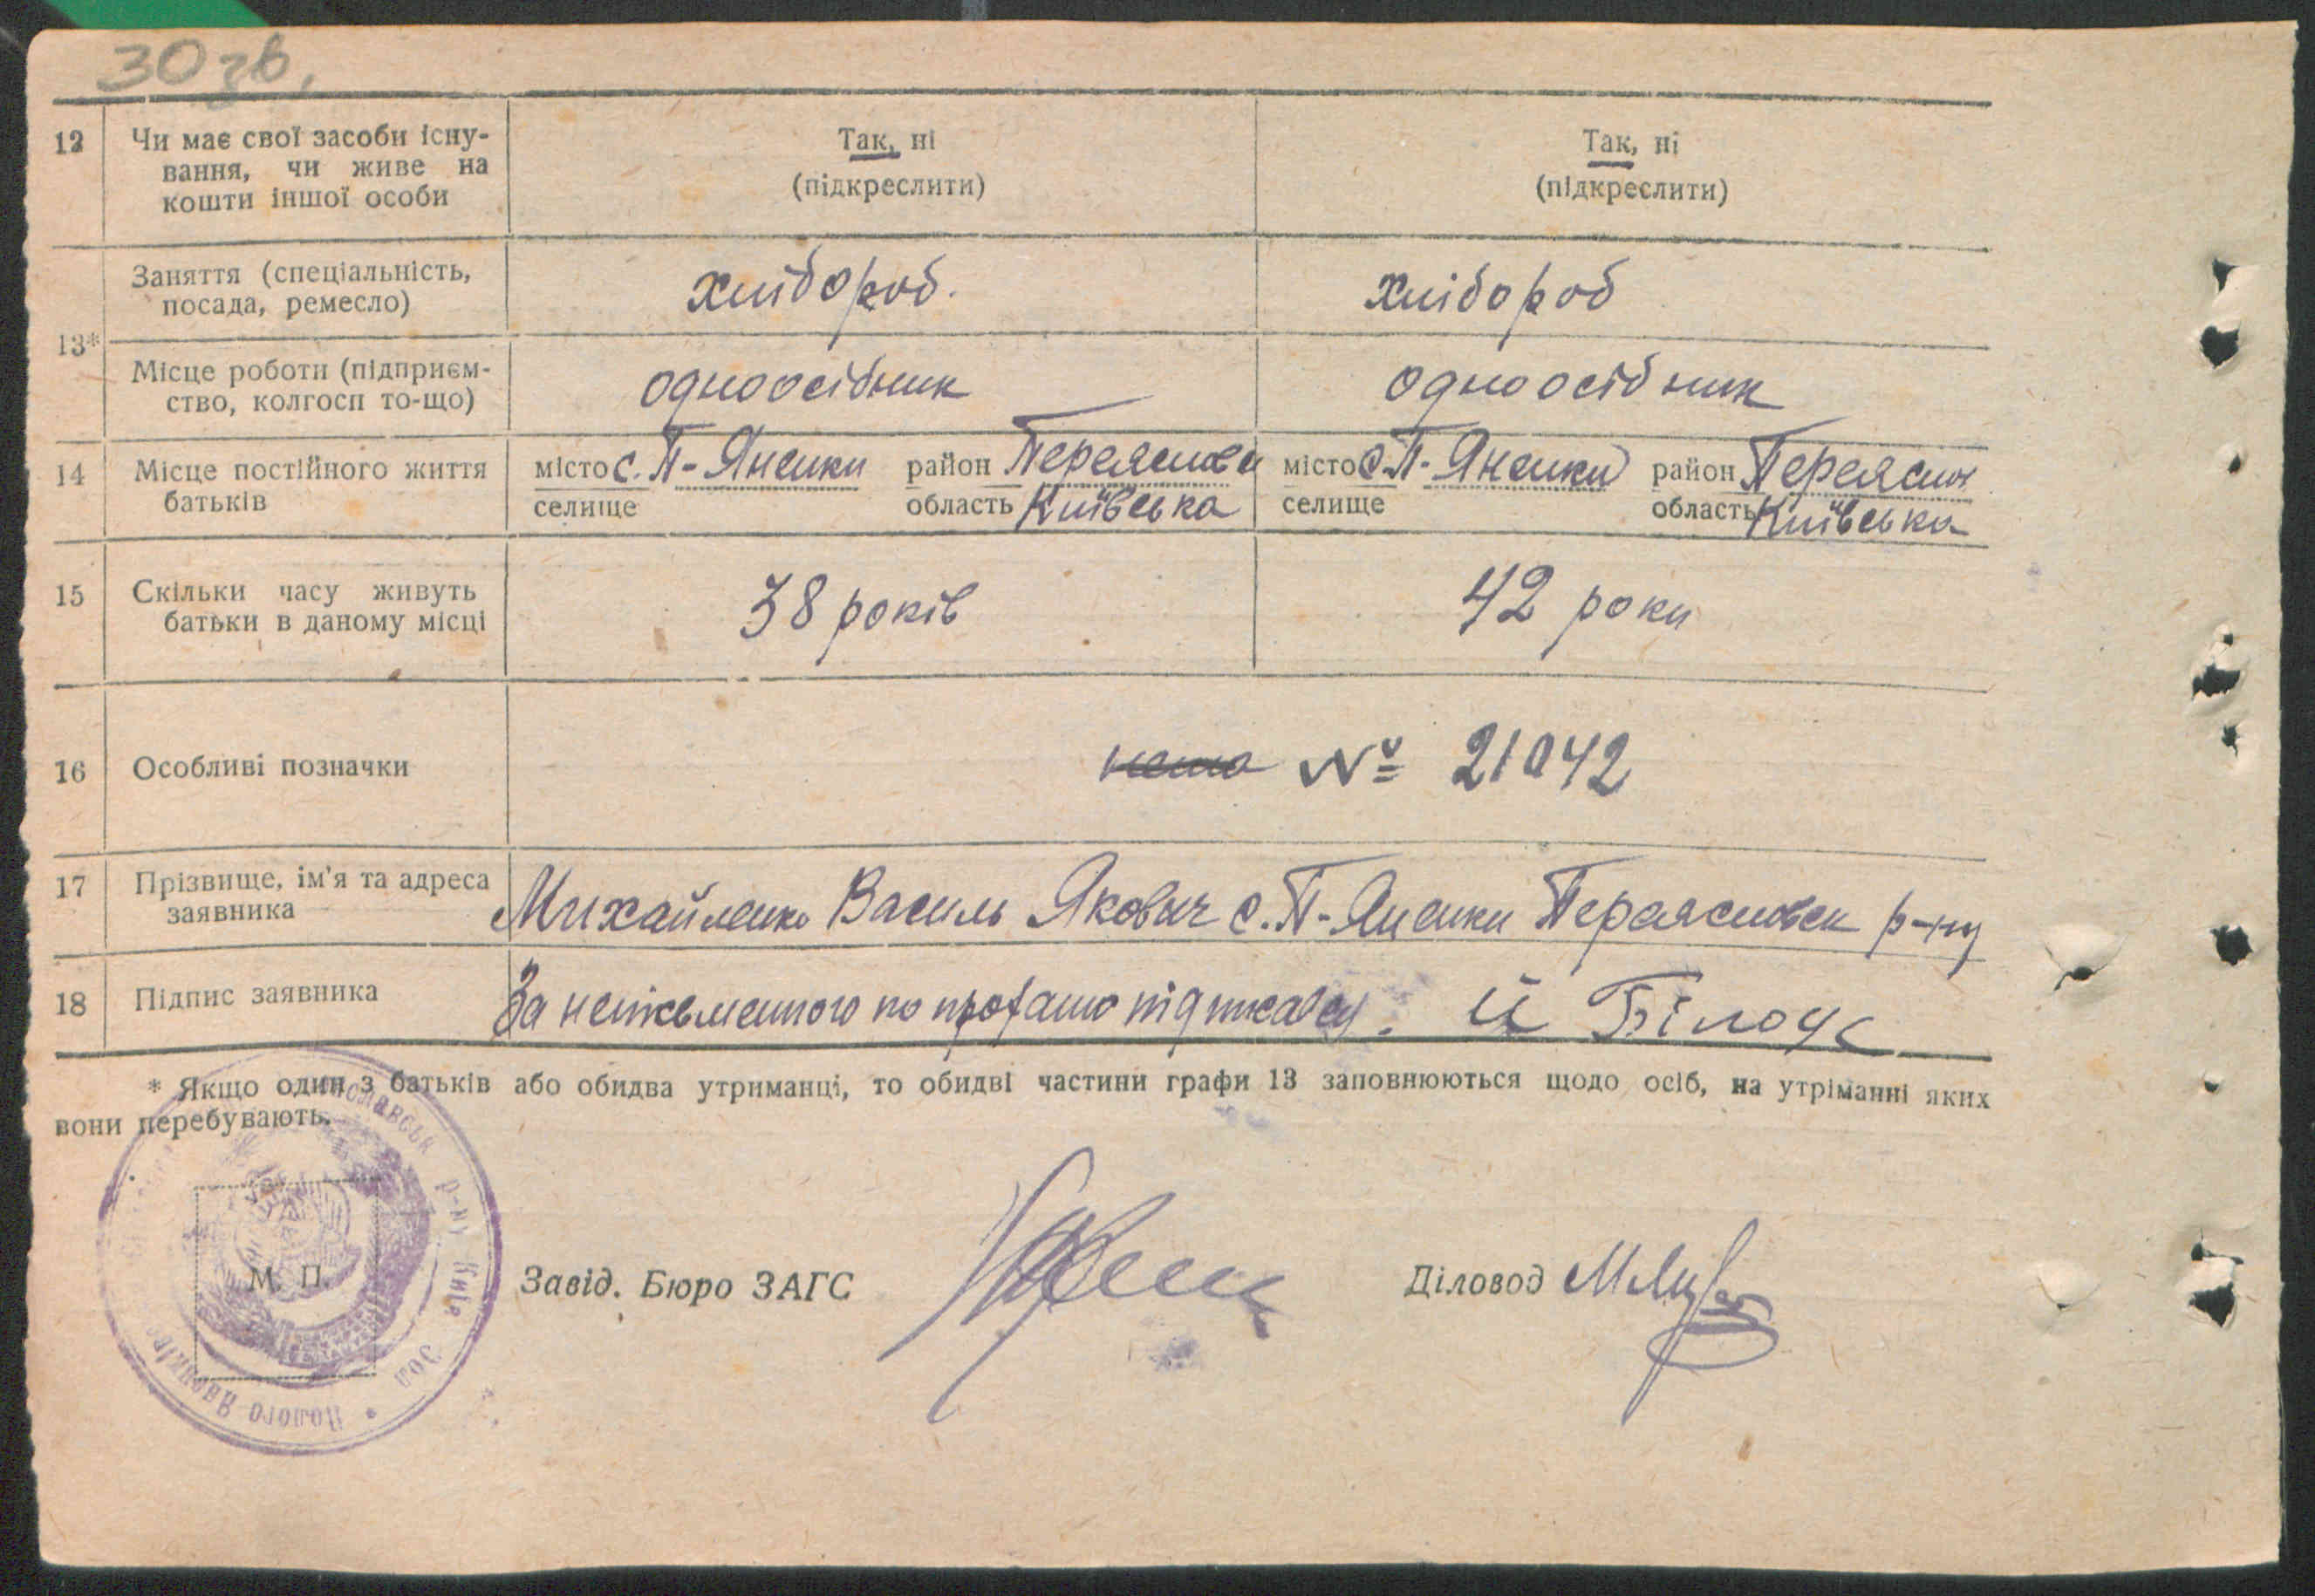 30 зв.
12 Чи має свої засоби існу- Так, ні Так, ні
вання, чи живе на (підкреслити) (підкреслити)
кошти іншої особи
Заняття (спеціальність, хлібороб. хлібороб
посада, ремесло)
13*
Місце роботи (підприєм- одноосібник одноосібник
ство, колгосп то-що)
14 Місце постійного життя місто с. П-Яненки район Переяслов місто с. П-Яненки район Переясл
батьків селище область Київська селище область Київська
15 Скільки часу живуть 38 років 42 роки
батьки в даному місці
16 Особливі позначки нема № 21042
17 Прізвище, ім'я та адреса Михайленко Василь Якович с. П-Яненки Переясловск р-ну
заявника
18 Підпис заявника За неписьменного по прозьбі підписався. Й Білоус
* Якщо один з батьків або обидва утриманці, то обидві частини графи 13 заповнюються щодо осіб, на утріманні яких
вони перебувають.
М. П.
Завід. Бюро ЗАГС Діловод